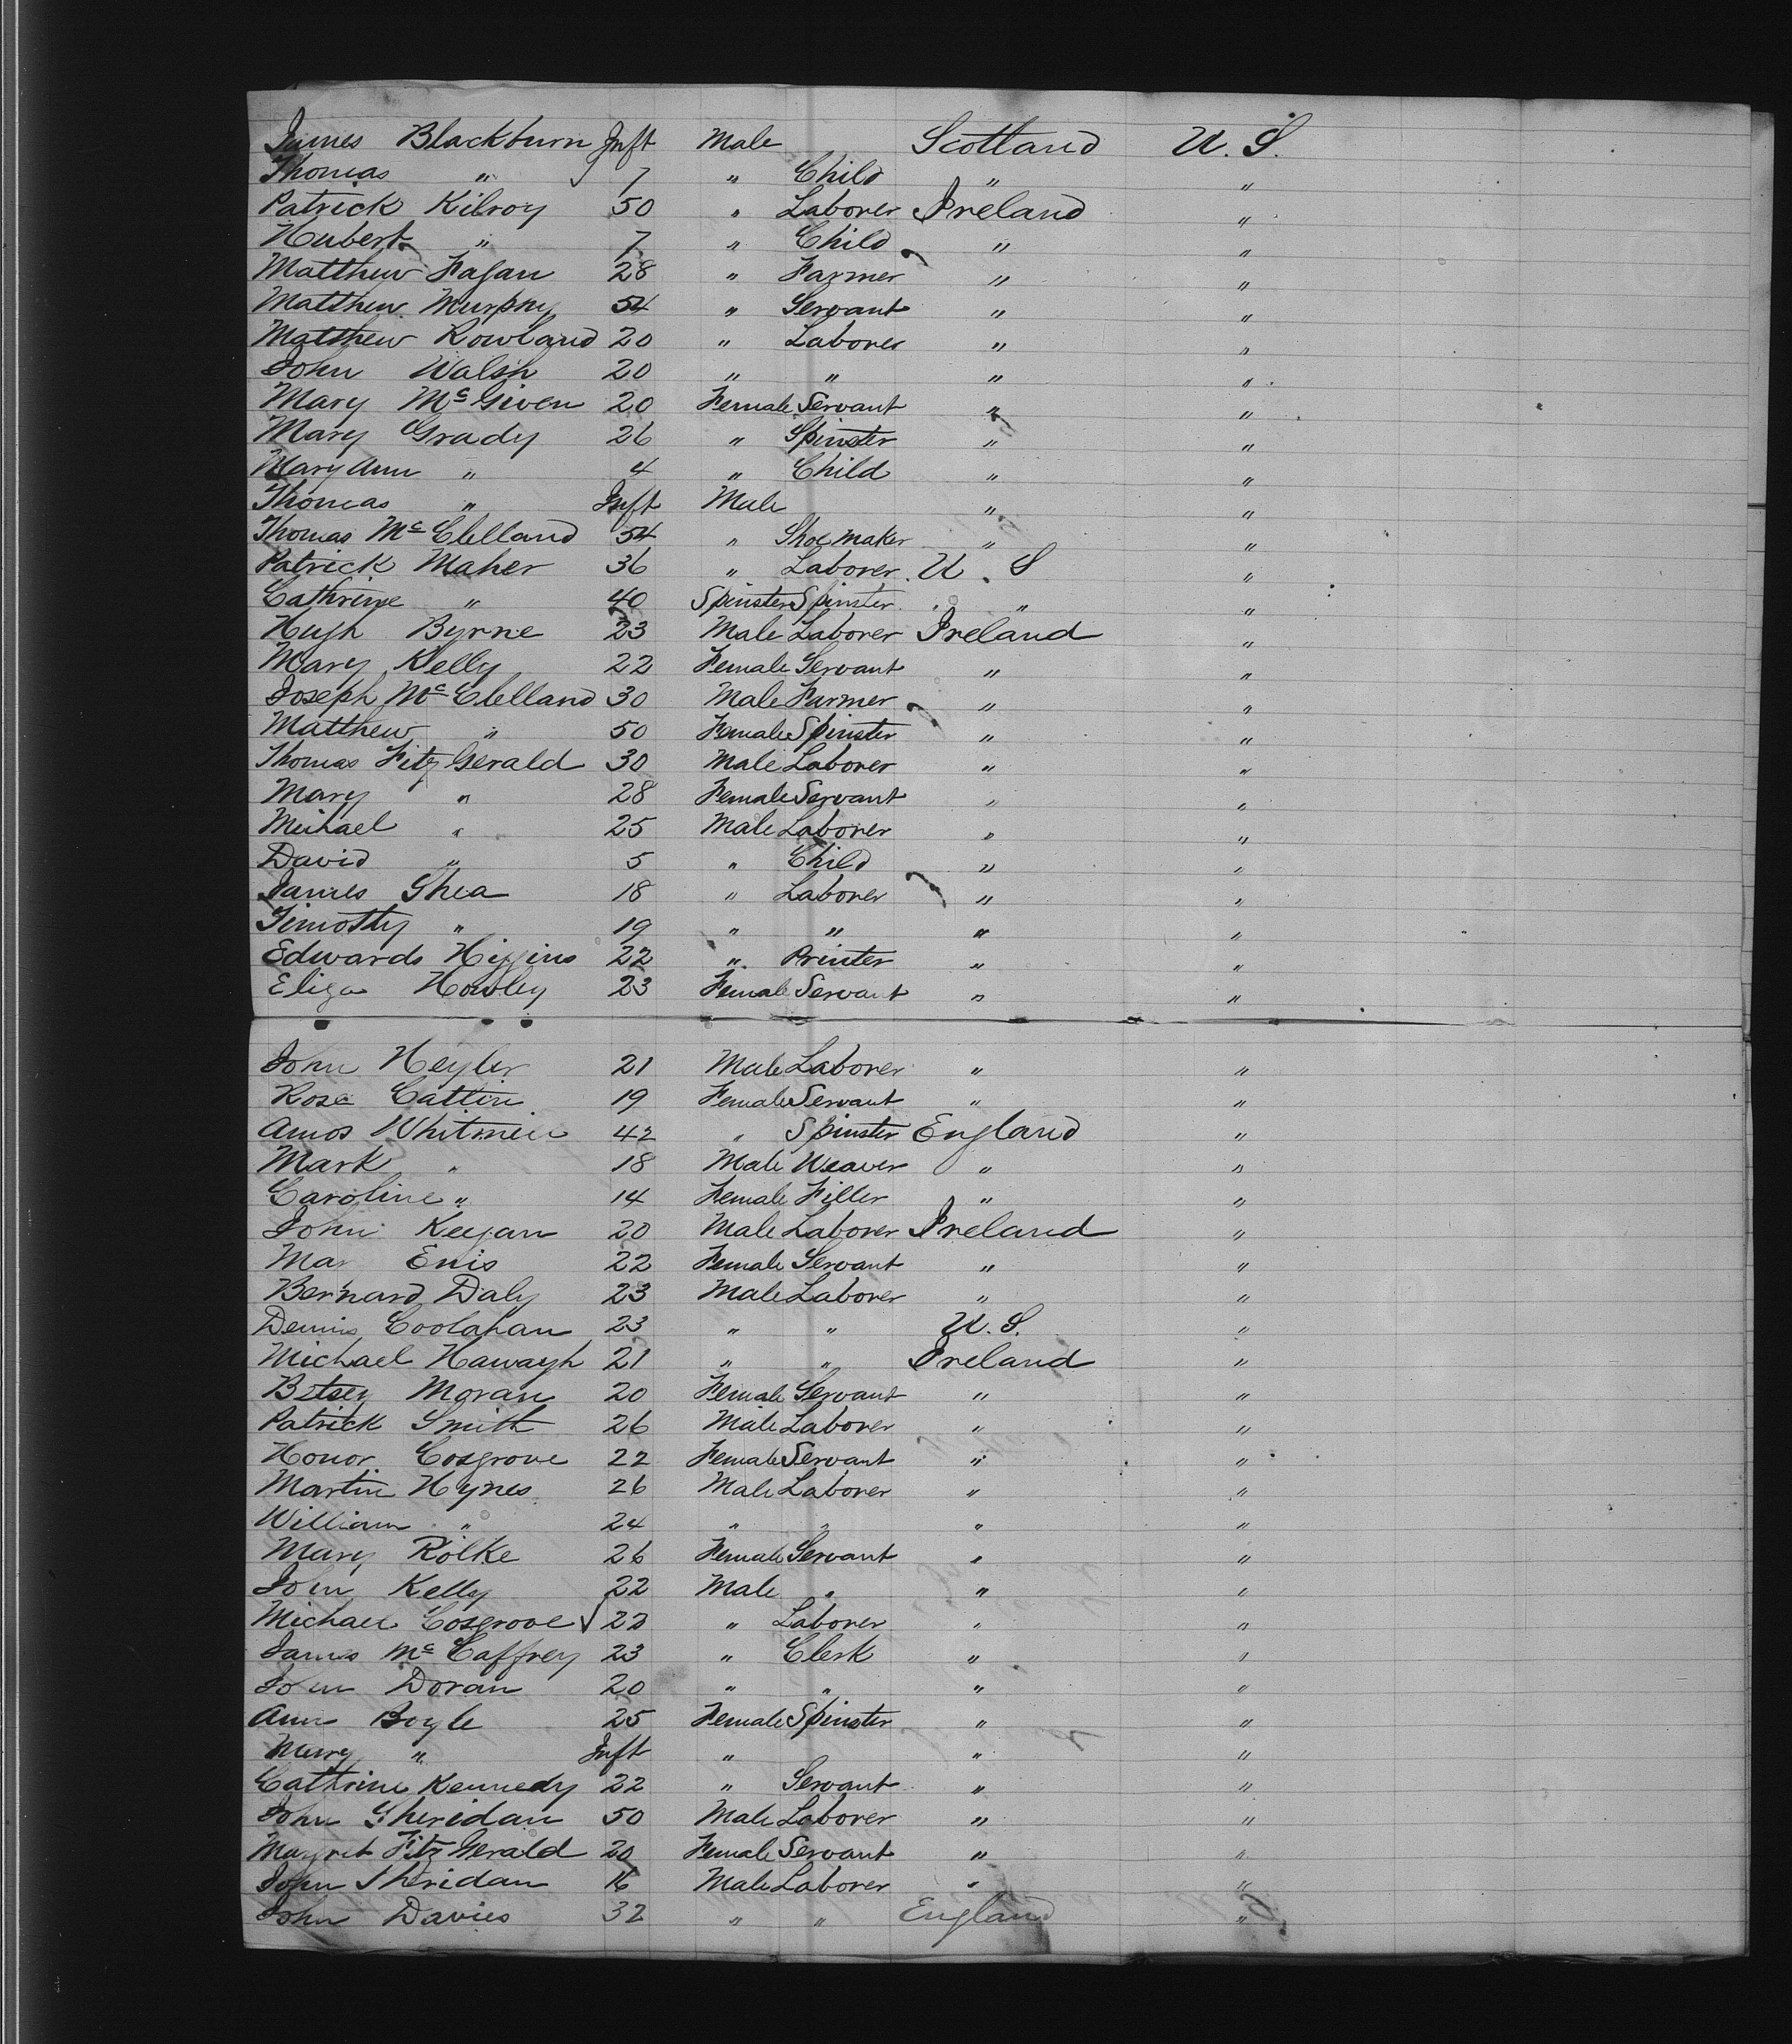 James Blackburn Inft Male Scotland U. S.
Thomas " 7 " Child " "
Patrick Kilroy 50 " Laborer Ireland "
Hubert " 7 " Child " "
Matthew Fagan 28 " Farmer " "
Matthew Murphy 54 " Servant " "
Matthew Rowland 20 " Laborer " "
John Walsh 20 " " " "
Mary McGiven 20 Female Servant " "
Mary Grady 26 " Spinster " "
Mary Ann " 4 " Child " "
Thomas " Inft Male " "
Thomas McClelland 54 " Shoe maker " "
Patrick Maher 36 " Laborer U. S "
Cathrine " 40 Spinster Spinster " "
Hugh Byrne 23 Male Laborer Ireland "
Mary Kelly 22 Female Servant " "
Joseph McClelland 30 Male Farmer " "
Matthew " 50 Female Spinster " "
Thomas Fitz Gerald 30 Male Laborer " "
Mary " 28 Female Servant " "
Michael " 25 Male Laborer " "
David " 5 " Child " "
James Shea 18 " Laborer " "
Timothy " 19 " " " "
Edwards Higgins 22 " Printer " "
Eliza Howley 23 Female Servant " "
John Heyler 21 Male Laborer " "
Rose Cattin 19 Female Servant " "
Amos 42 " Spinster England "
Mark " 18 Male Weaver " "
Caroline " 14 Female Filler " "
John Keegan 20 Male Laborer Ireland "
Mar Enis 22 Female Servant " "
Bernard Daly 23 Male Laborer " "
Dennis Coolahan 23 " " U. S. "
Michael Hawaygh 21 " " Ireland "
Betsey Moran 20 Female Servant " "
Patrick Smith 26 Male Laborer " "
Honor Cosgrove 22 Female Servant " "
Martin Hynes 26 Male Laborer " "
William " 24 " " " "
Mary Rolke 26 Female Servant " "
John Kelly 22 Male " " "
Michael Cosgrove √ 22 " Laborer " "
James McCaffrey 23 " Clerk " "
John Doran 20 " " " "
Ann Boyle 25 Female Spinster " "
Mary " Inft " " "
Cathrine Kennedy 22 " Servant " "
John Sheridan 50 Male Laborer " "
Margret Fitz Gerald 20 Female Servant " "
John Sheridan 16 Male Laborer " "
John Davies 32 " " England "